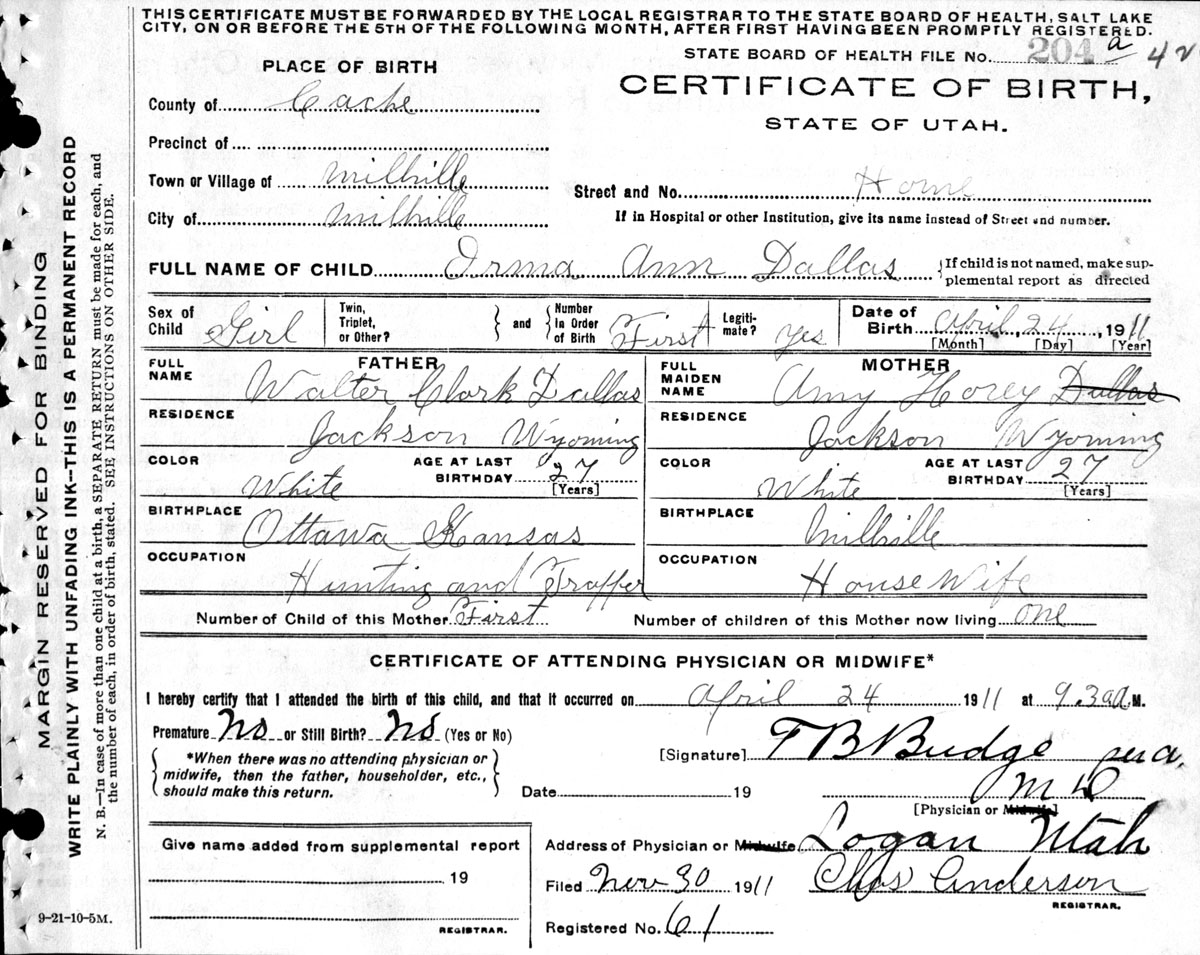 THIS CERTIFICATE MUST BE FORWARDED BY THE LOCAL REGISTRAR TO THE STATE BOARD OF HEALTH, SALT LAKE
CITY, ON OR BEFORE THE 5TH OF THE FOLLOWING MONTH, AFTER FIRST HAVING BEEN PROMPTLY REGISTERED.
STATE BOARD OF HEALTH FILE NO. 204 a 42
PLACE OF BIRTH
CERTIFICATE OF BIRTH,
STATE OF UTAH.
County of Cache
Precinct of
Town or Village of Millville
Street and No. Home
City of Millville
If in Hospital or other Institution, give its name instead of Street and number.
FULL NAME OF CHILD Orma Ann Dallas {If child is not named, make sup-
plemental report as directed
Sex of Child Girl Twin, Triplet, or Other? } and {Number in Order of Birth First Legiti-mate? yes Date of Birth April, 24, 1911
[Month] [Day] [Year]
FATHER
FULL NAME Walter Clark Dallas
RESIDENCE
Jackson Wyoming
COLOR White AGE AT LAST BIRTHDAY 27 [Years]
BIRTHPLACE
Ottawa Kansas
OCCUPATION
Hunting and Trapper
MOTHER
FULL MAIDEN NAME Amy Hovey Dallas
RESIDENCE
Jackson Wyoming
COLOR White AGE AT LAST BIRTHDAY 27 [Years]
BIRTHPLACE
Millville
OCCUPATION
House Wife
Number of Child of this Mother First Number of children of this Mother now living one
CERTIFICATE OF ATTENDING PHYSICIAN OR MIDWIFE*
I hereby certify that I attended the birth of this child, and that it occurred on April 24 1911 at 9.30 a.M.
Premature No or Still Birth? No (Yes or No)
{*When there was no attending physician or
midwife, then the father, householder, etc.,
should make this return.}
[Signature] T B Budge per a.
M D
Date 19
[Physician or Midwife]
Give name added from supplemental report
19
REGISTRAR.
Address of Physician or Midwife Logan Utah
Filed Nov 30 1911 Chas Anderson
REGISTRAR.
Registered No. 61
9-21-10-5M.
MARGIN RESERVED FOR BINDING
WRITE PLAINLY WITH UNFADING INK--THIS IS A PERMANENT RECORD
N. B.—In case of more than one child at a birth, a SEPARATE RETURN must be made for each, and
the number of each, in order of birth, stated. SEE INSTRUCTIONS ON OTHER SIDE.